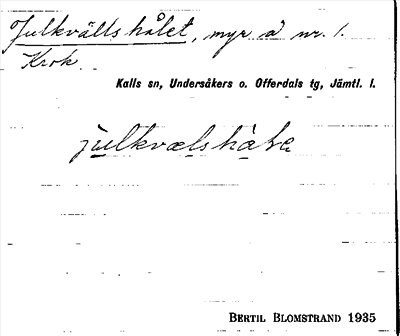 Julkvällshålet, myr å nr. 1.
Krok.
Kalls sn, Undersåkers o. Offerdals tg, Jämtl. l.
BERTIL BLOMSTRAND 1935